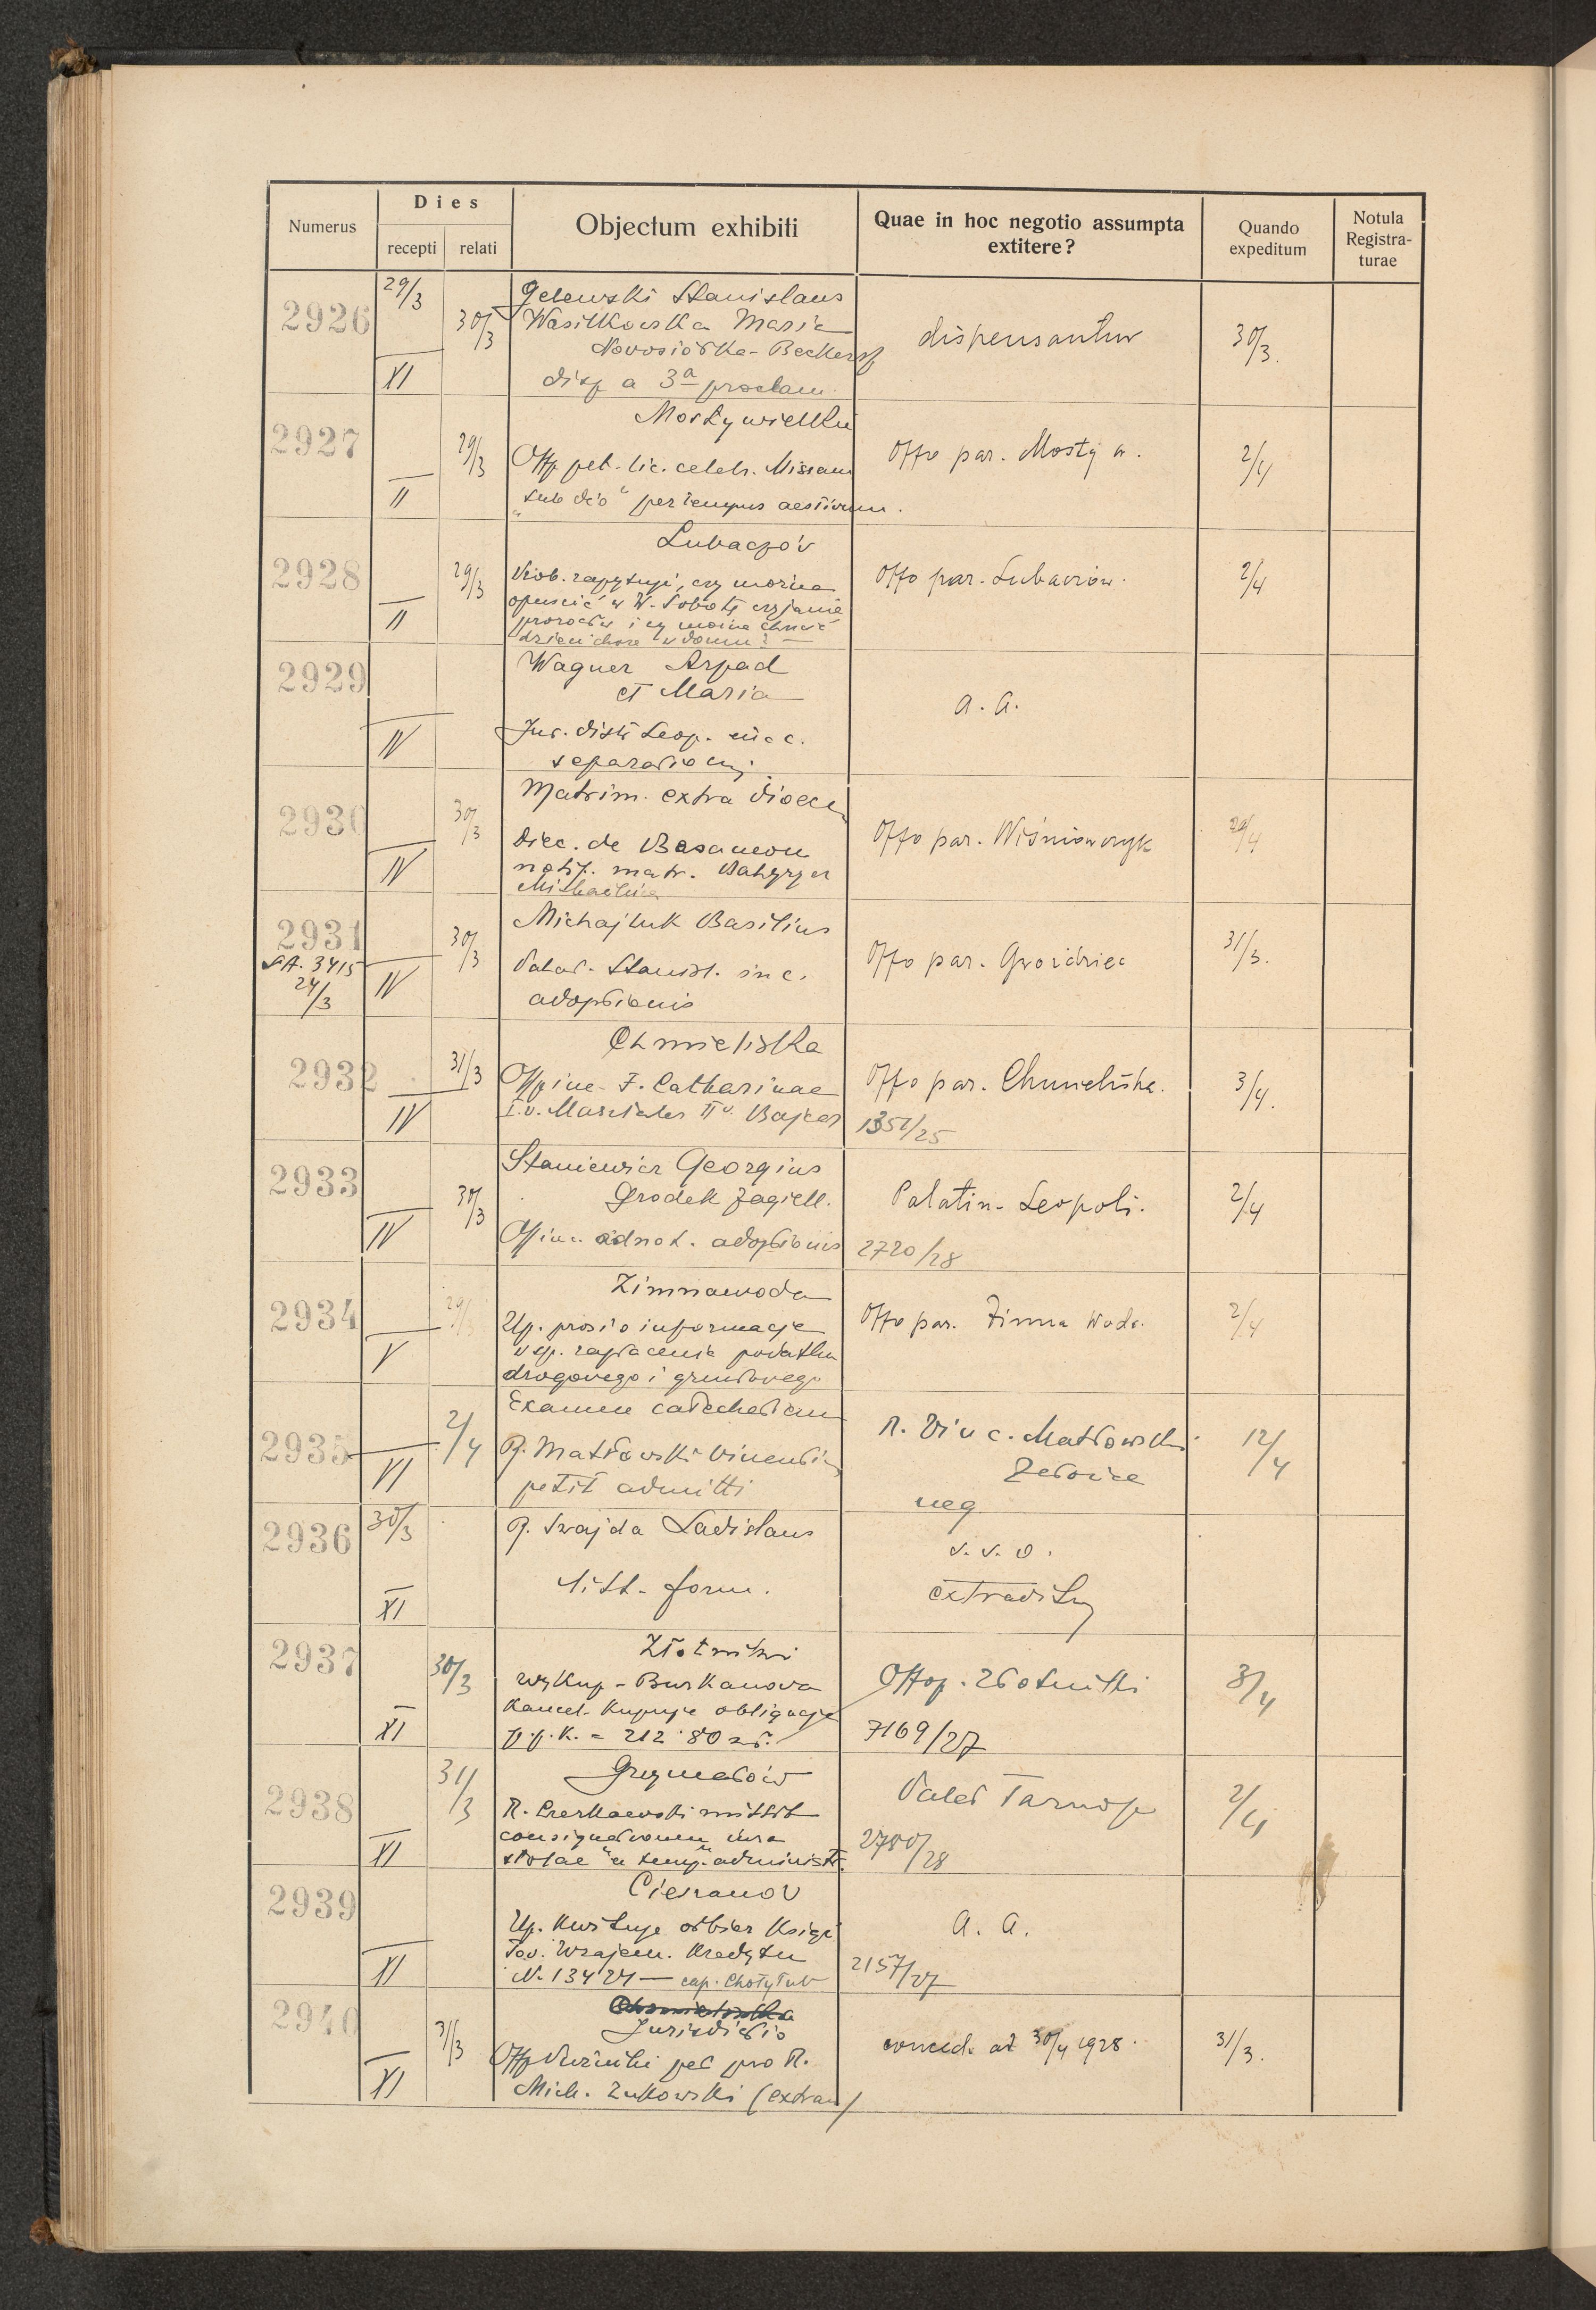 Numerus
Dies
recepti relati
Objectum exhibiti
Quae in hoc negotio assumpta
extitere?
Quando
expeditum
Notula
Registra-
turae
2926
29/3
30/3
XI
Gelewski Stanislaus
Wasilkowska Maria
disp a 3a proclam.
dispensantur
30/3.
2927
29/3
II
Mosty wielkie
Offp pet. lic. celebr. Missam
"sub dio" per tempus aestivum.
Offo par. Mosty w.
2/4
2928
29/3
II
Lubaczów
Prob. zapytuje, czy można
opuścić w W. Sobotę czytanie
proroctw i czy można chrzcić
dzieci chore w domu? —
Offo par. Lubaczów.
2/4
2929
IV
Wagner Arpad
et Maria
Jud. distr Leop. in c.
separationis
a. a.
2930
30/3
IV
Matrim. extra dioec
notif. matr.
Offo par. Wiśniowczyk
2931
30/3
24/3
IV
Michajluk Basilius
Palat. Stanisl. in c.
adoptionis
Offo par. Gwoździec
31/3.
2932
31/3
IV
Chmieliska
Offp in c. F. Catharinae
Offo par. Chmieliska.
1351/25
3/4.
2933
30/3
IV
Staniewicz Georgius
Gródek Jagiell.
Offp in c. adnot. adoptionis
Palatin. Leopoli.
2720/28
2/4
2934
29/3
V
Zimnawoda
Up. prosi o informacje
w sp. zapłacenia podatku
drogowego i gruntowego
Offo par. Zimna Woda.
2/4
2935
2/4
VI
Examen catecheticum
R. Matkowski Vincentius
petit admitti
R. Vinc. Matkowski
neg
12/4
2936
30/3
XI
R. Swajda Ladislaus
litt. form.
s. v. o.
extraditum
2937
30/3
XI
Złotniki
wykup - Burkanowa
Kancel. kupuje obligacje
p.p.K. = 212.80 zł.
Offop. Złotniki
7169/27
3/4
2938
31/3
XI
Grzymałów
R. mittit
consignationem iura
stolae a temp. administr.
Palat Tarnop
2780/28
2/4
2939
XI
Cieszanow
Up. kwituje odbiór Książ
Tow. Wzajem. Kredytu
N. 13424 — cap. Chotylub
a. a.
2157/27
2940
31/3
XI
Jurisdictio
Offp pet pro R.
Mich. Żukowski (extran)
conced. ad 30/4 1928.
31/3.